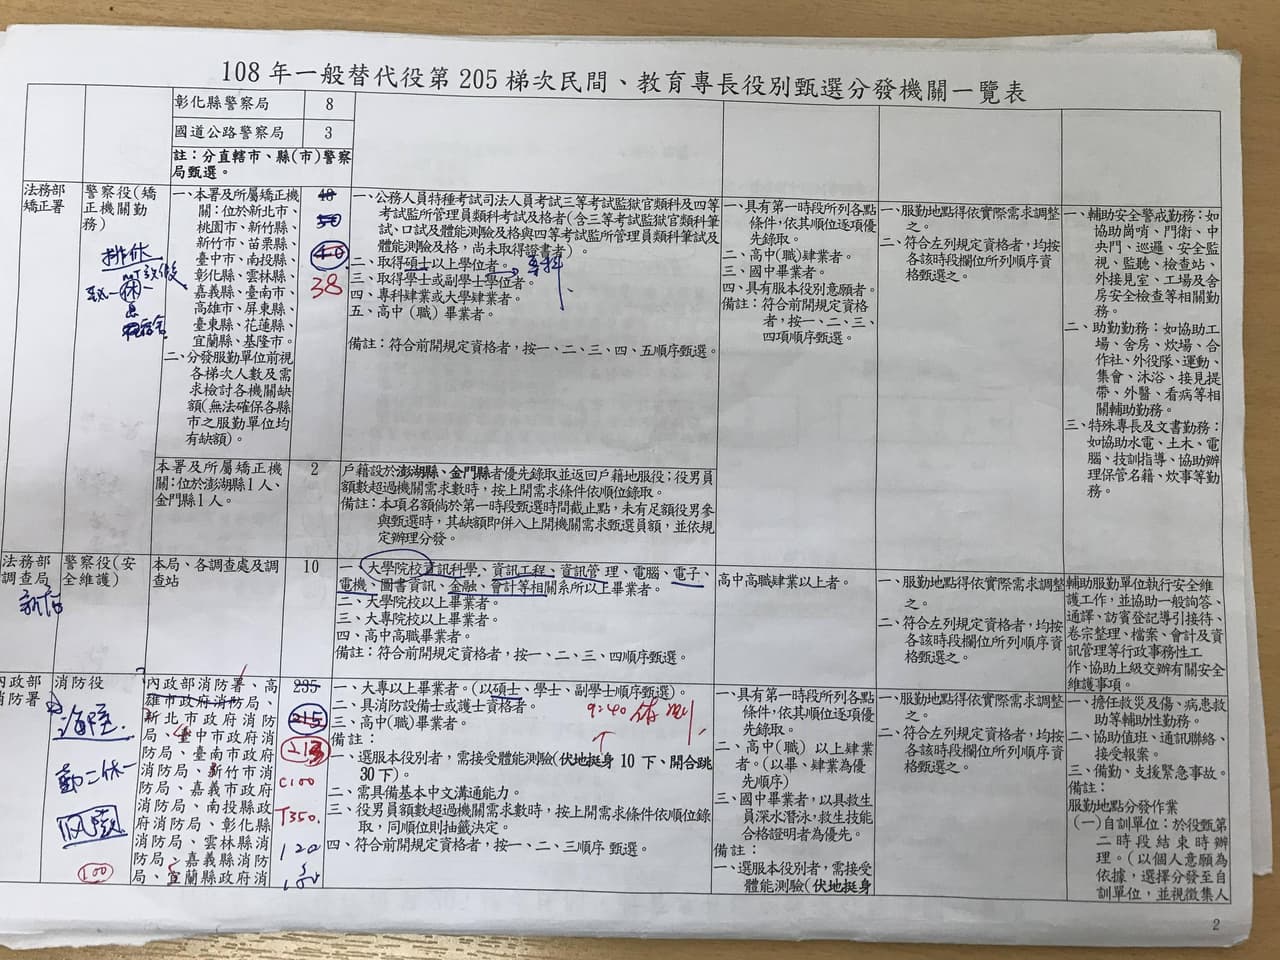 108年一般替代役第205梯次民間、教育專長役別甄選分發機關一覽表
彰化縣警察局
8
國道公路警察局
3
註：分直轄市、縣(市)警察
局甄選。
法務部
矯正署
警察役(矯
正機關勤
務)
排休
一、本署及所屬矯正機
關：位於新北市、
桃園市、新竹縣、
新竹市、苗栗縣、
臺中市、南投縣、
彰化縣、雲林縣、
嘉義縣、臺南市、
高雄市、屏東縣、
臺東縣、花蓮縣、
宜蘭縣、基隆市。
二、分發服勤單位前視
各梯次人數及需
求檢討各機關缺
額(無法確保各縣
市之服勤單位均
有缺額)。
38
一、公務人員特種考試司法人員考試三等考試監獄官類科及四等
考試監所管理員類科考試及格者(含三等考試監獄官類科筆
試、口試及體能測驗及格與四等考試監所管理員類科筆試及
體能測驗及格，尚未取得證書者)。
二、取得碩士以上學位者。
三、取得學士或副學士學位者。
四、專科肄業或大學肄業者。
五、高中（職）畢業者。
備註：符合前開規定資格者，按一、二、三、四、五順序甄選。
一、具有第一時段所列各點
條件，依其順位逐項優
先錄取。
二、高中(職)肄業者。
三、國中畢業者。
四、具有服本役別意願者。
備註：符合前開規定資格
者，按一、二、三、
四項順序甄選。
一、服勤地點得依實際需求調整
之。
二、符合左列規定資格者，均按
各該時段欄位所列順序資
格甄選之。
一、輔助安全警戒勤務：如
協助崗哨、門衛、中
央門、巡邏、安全監
視、監聽、檢查站、
外接見室、工場及舍
房安全檢查等相關勤
務。
二、助勤勤務：如協助工
場、舍房、炊場、合
作社、外役隊、運動、
集會、沐浴、接見提
帶、外醫、看病等相
關輔助勤務。
三、特殊專長及文書勤務：
如協助水電、土木、電
腦、技訓指導、協助辦
理保管名籍、炊事等勤
務。
本署及所屬矯正機
關：位於澎湖縣1人、
金門縣1人。
2
戶籍設於澎湖縣、金門縣者優先錄取並返回戶籍地服役；役男員
額數超過機關需求數時，按上開需求條件依順位錄取。
備註：本項名額倘於第一時段甄選時間截止點，未有足額役男參
與甄選時，其缺額即併入上開機關需求甄選員額，並依規
定辦理分發。
法務部
調查局
新店
警察役(安
全維護)
本局、各調查處及調
查站
10
一、大學院校資訊科學、資訊工程、資訊管理、電腦、電子、
電機、圖書資訊、金融、會計等相關系所以上畢業者。
二、大學院校以上畢業者。
三、大專院校以上畢業者。
四、高中高職畢業者。
備註：符合前開規定資格者，按一、二、三、四順序甄選。
高中高職肄業以上者。
一、服勤地點得依實際需求調整
之。
二、符合左列規定資格者，均按
各該時段欄位所列順序資
格甄選之。
輔助服勤單位執行安全維
護工作，並協助一般詢答、
通譯、訪賓登記導引接待、
卷宗整理、檔案、會計及資
訊管理等行政事務性工
作、協助上級交辦有關安全
維護事項。
內政部
消防署
消防役
勤二休一
風險
100
內政部消防署、高
雄市政府消防局、
新北市政府消防
局、臺中市政府消
防局、臺南市政府
消防局、新竹市消
防局、嘉義市政府
消防局、南投縣政
府消防局、彰化縣
消防局、雲林縣消
防局、嘉義縣消防
局、宜蘭縣政府消
235
215
213
C100
T350.
120
一、大專以上畢業者。(以碩士、學士、副學士順序甄選)。
二、具消防設備士或護士資格者。
三、高中(職)畢業者。
9:40 体測
備註：
一、選服本役別者，需接受體能測驗(伏地挺身 10 下、開合跳
30 下)。
二、需具備基本中文溝通能力。
三、役男員額數超過機關需求數時，按上開需求條件依順位錄
取，同順位則抽籤決定。
四、符合前開規定資格者，按一、二、三順序 甄選。
一、具有第一時段所列各點
條件，依其順位逐項優
先錄取。
二、高中（職）以上肄業
者。(以畢、肄業為優
先順序)
三、國中畢業者，以具救生
員深水潛泳、救生技能
合格證明者為優先。
備註：
一、選服本役別者，需接受
體能測驗(伏地挺身
一、服勤地點得依實際需求調整
之。
二、符合左列規定資格者，均按
各該時段欄位所列順序資
格甄選之。
一、擔任救災及傷、病患救
助等輔助性勤務。
二、協助值班、通訊聯絡、
接受報案。
三、備勤、支援緊急事故。
備註：
服勤地點分發作業
(一)自訓單位：於役甄第
二時段結束時辦
理。(以個人意願為
依據，選擇分發至自
訓單位，並視徵集人
2